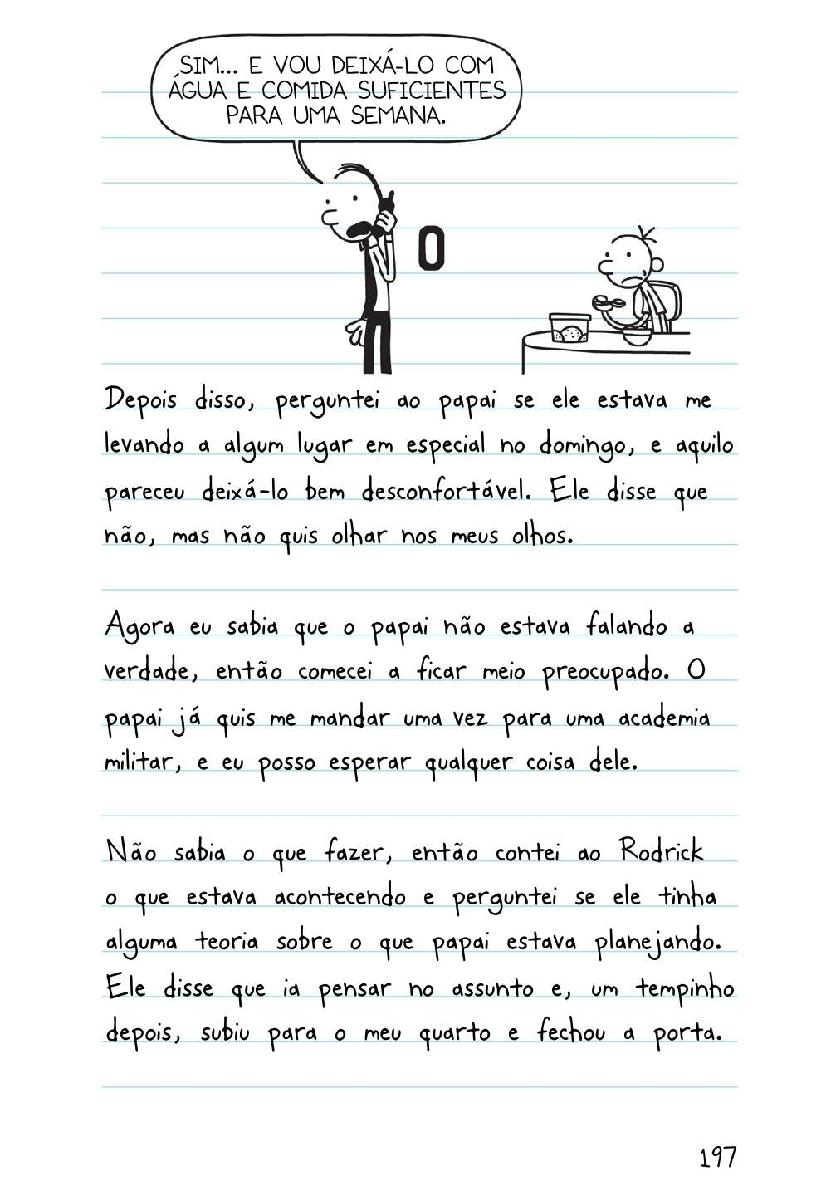 SIM... E VOU DEIXÁ-LO COM
ÁGUA E COMIDA SUFICIENTES
PARA UMA SEMANA.
O
Depois disso, perguntei ao papai se ele estava me
levando a algum lugar em especial no domingo, e aquilo
pareceu deixá-lo bem desconfortável. Ele disse que
não, mas não quis olhar nos meus olhos.
Agora eu sabia que o papai não estava falando a
verdade, então comecei a ficar meio preocupado. O
papai já quis me mandar uma vez para uma academia
militar, e eu posso esperar qualquer coisa dele.
Não sabia o que fazer, então contei ao Rodrick
o que estava acontecendo e perguntei se ele tinha
alguma teoria sobre o que papai estava planejando.
Ele disse que ia pensar no assunto e, um tempinho
depois, subiu para o meu quarto e fechou a porta.
197